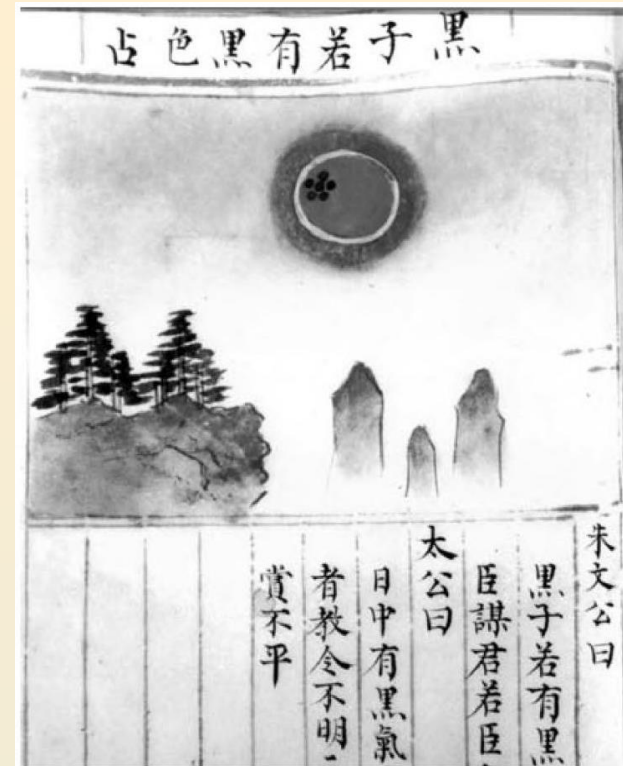 黑子若有黑色占
朱文公曰
黑子若有黑
臣謀君若臣
太公曰
日中有黑氣
者教令不明
賞不平